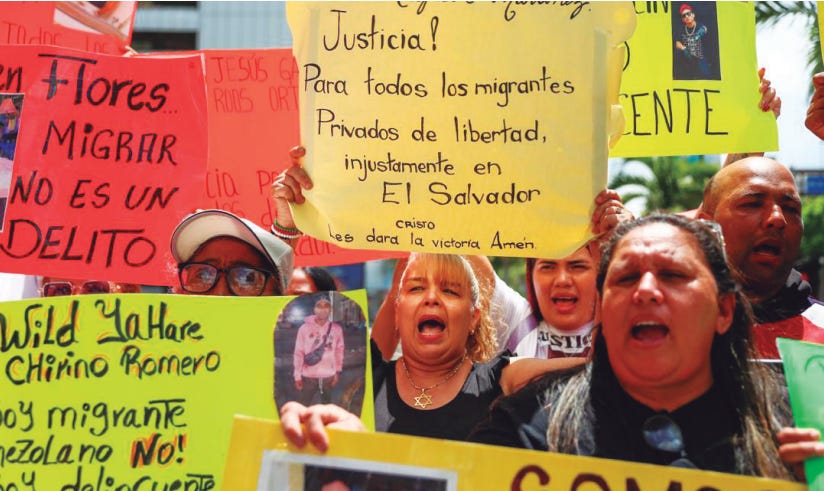 en Flores...
MIGRAR
NO ES UN
DELITO
JESÚS
Justicia!
Para todos los migrantes
Privados de libertad,
injustamente en
El Salvador
CRISTO
les dara la victoria Amén.
CENTE
Wild YaHare
CHirino Romero
oy migrante
nezolano NO!
oy delincuente
JUSTIC
SOMOS